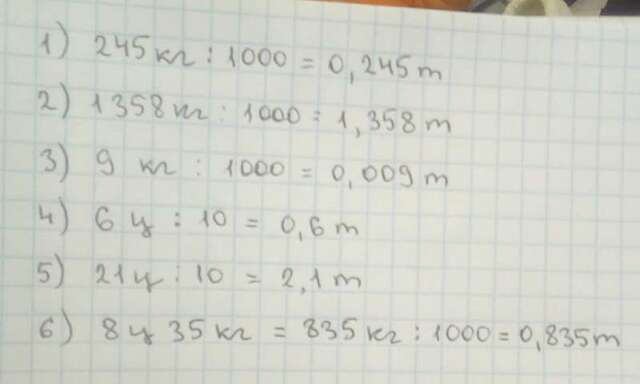 1) 245 кг : 1000 = 0,245 т
2) 1358 кг : 1000 = 1,358 т
3) 9 кг : 1000 = 0,009 т
4) 6 ц : 10 = 0,6 т
5) 21 ц : 10 = 2,1 т
6) 8 ц 35 кг = 835 кг : 1000 = 0,835 т